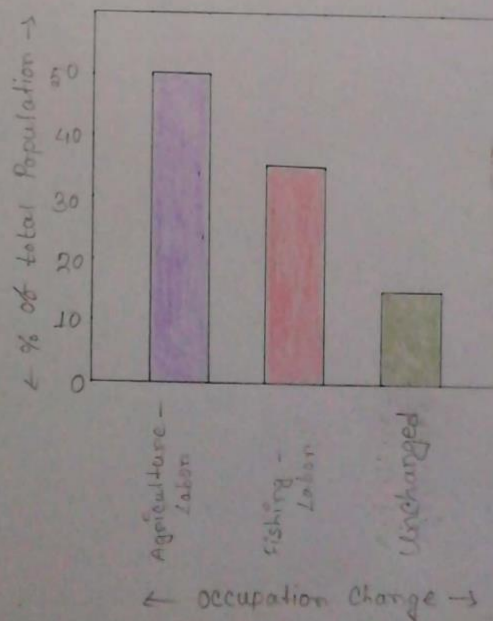 ← % of total Population →
50
40
30
20
10
0
Agriculture -
Labor
Fishing -
Labor
Unchanged
← Occupation Change →